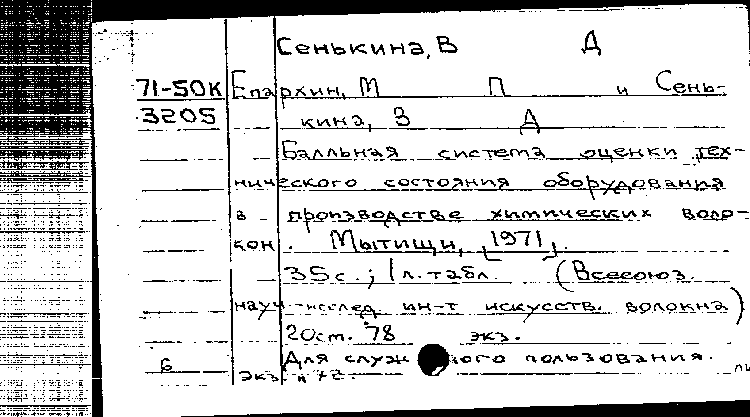 Сенькина, В Д
71-50К Епархин, М П и Сень-
3205 кина, В Д
Балльная система оценки тех-
нического состояния оборудования
в производстве химических воло-
кон. Мытищи, 1971.
35с.; 1 л. табл. (Всесоюз.
науч.-исслед. ин-т искусств. волокна)
20см. 78 экз.
Для пользования.
6 экз. н 72.